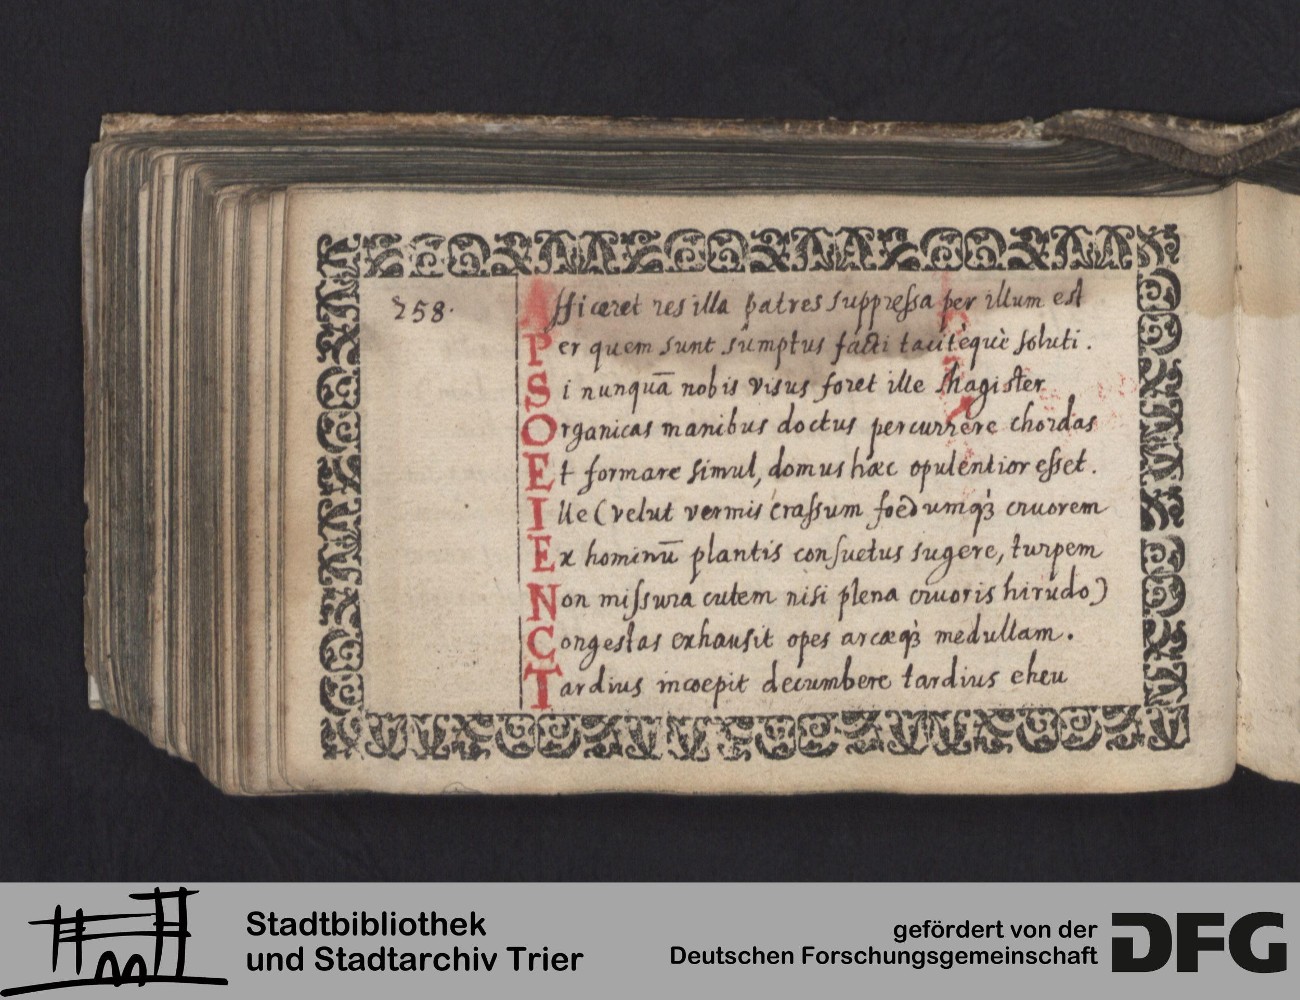 258.
Afficeret res illa patres suppressa per illum est
Per quem sunt sumptus facti tacitèquè soluti.
Si nunquā nobis visus foret ille Magister
Organicas manibus doctus percurrere chordas
Et formare simul, domus hæc opulentior esset.
Ille (velut vermis crassum foedumqꝫ cruorem
Ex hominū plantis consuetus sugere, turpem
Non missura cutem nisi plena cruoris hirudo)
Congestas exhausit opes arcæqꝫ medullam.
Tardius incoepit decumbere tardius eheu
Stadtbibliothek
und Stadtarchiv Trier
gefördert von der
Deutschen Forschungsgemeinschaft
DFG